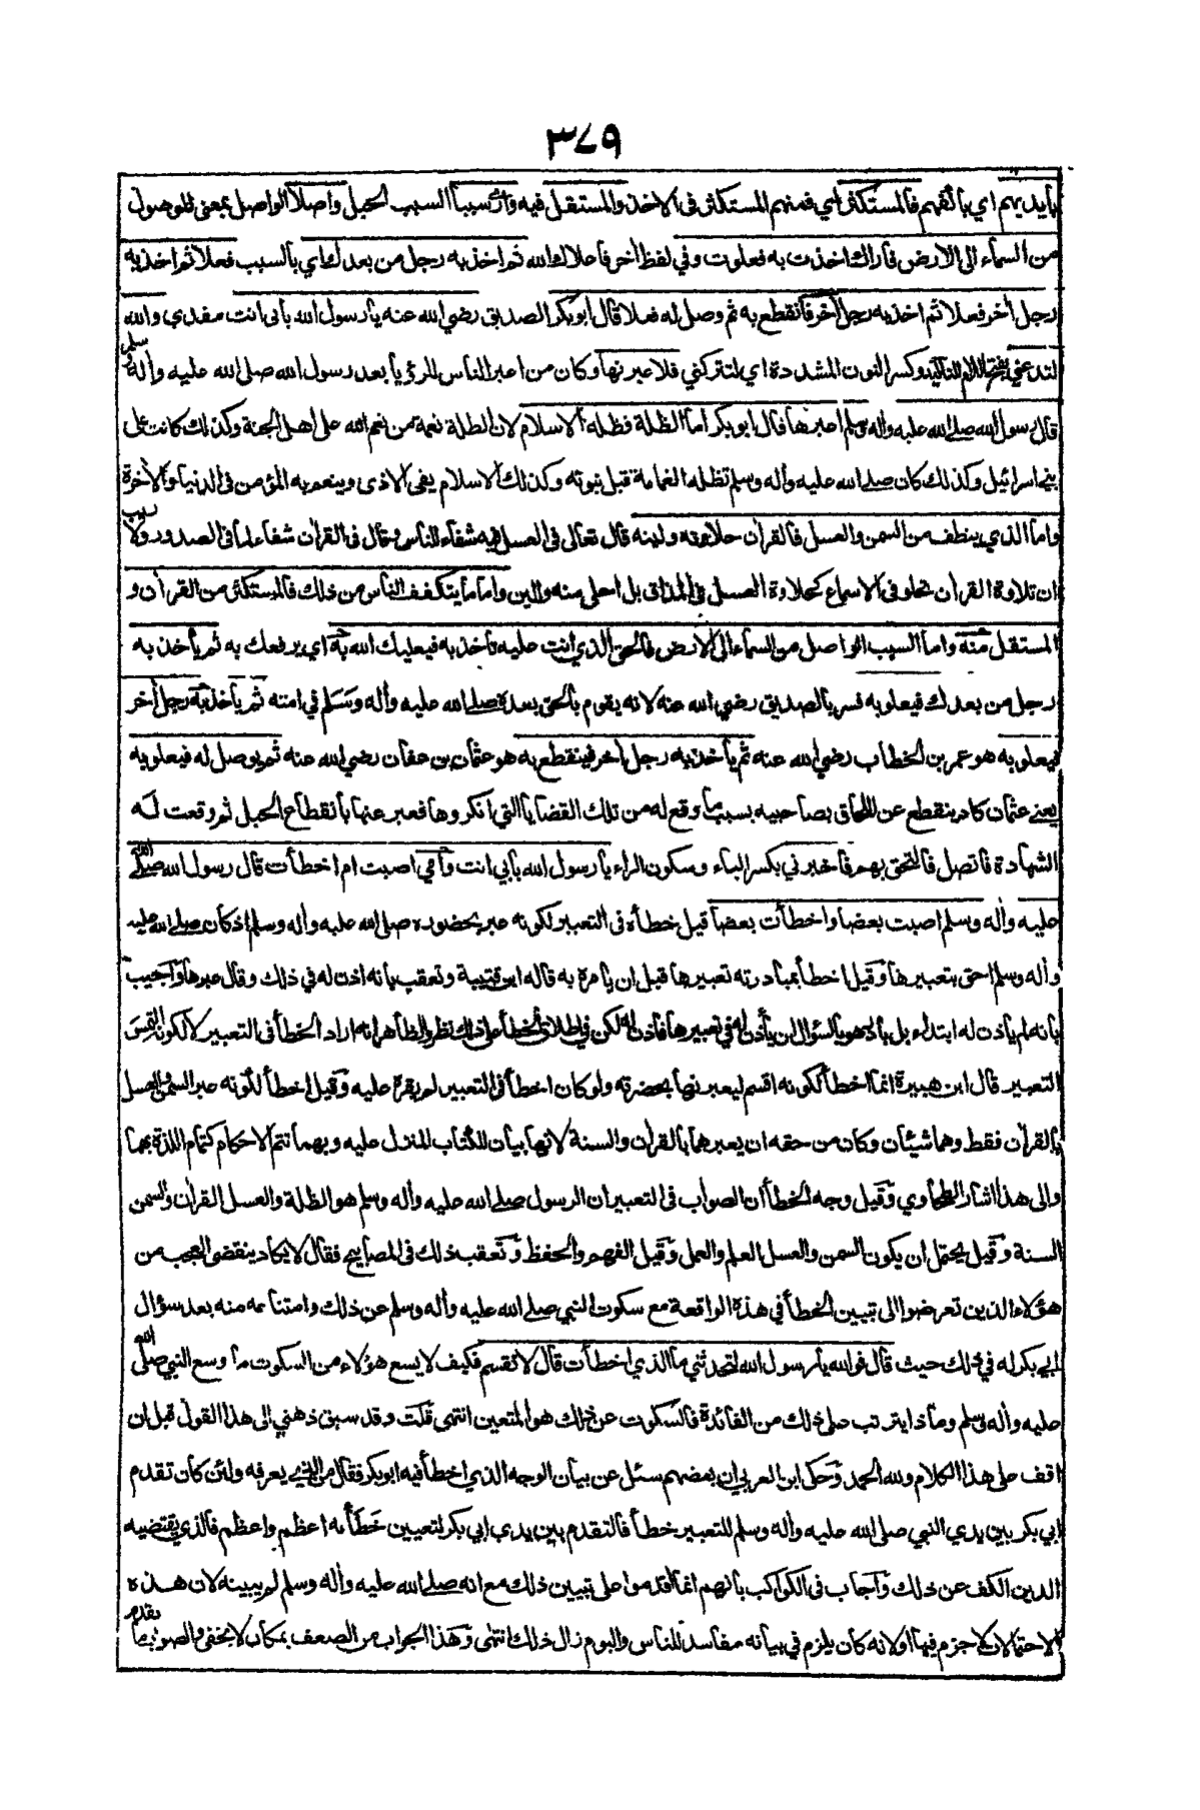 ٣٧٩
بأيديهم اي بأكفهم فالمستكثر اي فمنهم المستكثر في الاخذ والمستقل فيه وارى سببا السبب الحبل واصلا الواصل بمعنى الموصول
من السماء الى الارض فأراك اخذت به فعلوت وفي لفظ أخر فأعلاك الله ثم اخذ به رجل من بعدك اي بالسبب فعلا ثم اخذ به
رجل أخر فعلا ثم اخذ به رجل أخر فانقطع به ثم وصل له فعلا قال ابو بكر الصديق رضي الله عنه يا رسول الله بأبي انت مفدي والله
لتدعني بفتح اللام للتاكيد وكسر النون المشددة اي لتتركني فلاعبرنها وكان من اعبر الناس للرؤيا بعد رسول الله صلى الله عليه وأله وسلم
قال رسول الله صلى الله عليه وأله وسلم اعبرها فقال ابو بكر اما الظلة فظلة الاسلام لان الظلة نعمة من نعم الله على اهل الجنة وكذلك كانت على
بني اسرائيل وكذلك كان صلى الله عليه وأله وسلم تظله الغمامة قبل نبوته وكذلك الاسلام يقي الاذى وينعم به المؤمن في الدنيا والاخرة
واما الذي ينطف من السمن والعسل فالقرأن حلاوته ولينه قال تعالى في العسل فيه شفاء للناس وقال في القرأن شفاء لما في الصدور ولا ريب
ان تلاوة القرأن تحلو في الاسماع كحلاوة العسل في المذاق بل احلى منه والين واما ما يتكفف الناس من ذلك فالمستكثر من القرأن و
المستقل منه واما السبب الواصل من السماء الى الارض فالحق الذي انت عليه تأخذ به فيعليك الله به اي يرفعك به ثم يأخذ به
رجل من بعدك فيعلو به فسر بالصديق رضي الله عنه لانه يقوم بالحق بعده صلى الله عليه وأله وسلم في امته ثم يأخذ به رجل أخر
فيعلو به هو عمر بن الخطاب رضي الله عنه ثم يأخذ به رجل أخر فينقطع به هو عثمان بن عفان رضي الله عنه ثم يوصل له فيعلو به
يعني عثمان كاد ينقطع عن اللحاق بصاحبيه بسبب ما وقع له من تلك القضايا التي انكروها فعبر عنها بانقطاع الحبل ثم وقعت له
الشهادة فاتصل فالتحق بهم فأخبرني بكسر الباء وسكون الراء يا رسول الله بأبي انت وأمي اصبت ام اخطأت قال رسول الله صلى الله
عليه وأله وسلم اصبت بعضا واخطأت بعضا قيل خطأه في التعبير لكونه عبر بحضوره صلى الله عليه وأله وسلم اذ كان صلى الله عليه
وأله وسلم احق بتعبيرها وقيل اخطأ بمبادرته تعبيرها قبل ان يأمره به قاله ابن قتيبة وتعقب بأنه اذن له في ذلك وقال عبرها واجيب
بأنه لم يأذن له ابتداء بل بادر هو بالسؤال ان يأذن له في تعبيرها فأذن له لكن في اطلاق الخطأ على ذلك نظر والظاهر انه اراد الخطأ في التعبير لا لكونه التمس
التعبير قال ابن هبيرة انما اخطأ لكونه اقسم ليعبرنها بحضرته ولو كان اخطأ في التعبير لم يقره عليه وقيل اخطأ لكونه عبر السمن والعسل
بالقرأن فقط وهما شيئان وكان من حقه ان يعبرهما بالقرأن والسنة لانها بيان للكتاب المنزل عليه وبهما تتم الاحكام كتمام اللذة بهما
والى هذا اشار الطحاوي وقيل وجه الخطأ ان الصواب في التعبير ان الرسول صلى الله عليه وأله وسلم هو الظلة والعسل القرأن والسمن
السنة وقيل يحتمل ان يكون السمن والعسل العلم والعمل وقيل الفهم والحفظ وتعقب ذلك في المصابيح فقال لا يكاد ينقضي العجب من
هؤلاء الذين تعرضوا الى تبيين الخطأ في هذه الواقعة مع سكوت النبي صلى الله عليه وأله وسلم عن ذلك وامتناعه منه بعد سؤال
ابي بكر له في ذلك حيث قال فوالله يا رسول الله لتحدثني ما الذي اخطأت قال لا تقسم فكيف لا يسع هؤلاء من السكوت ما وسع النبي صلى الله
عليه وأله وسلم وماذا يترتب على ذلك من الفائدة فالسكوت عن ذلك هو المتعين انتهى قلت وقد سبق ذهني الى هذا القول قبل ان
اقف على هذا الكلام ولله الحمد وحكى ابن العربي ان بعضهم سئل عن بيان الوجه الذي اخطأ فيه ابو بكر فقال من الذي يعرفه ولئن كان تقدم
ابي بكر بين يدي النبي صلى الله عليه وأله وسلم للتعبير خطأ فالتقدم بين يدي ابي بكر لتعيين خطأه اعظم واعظم فالذي يقتضيه
الدين الكف عن ذلك واجاب في الكواكب بأنهم انما اقدموا على تبيين ذلك مع انه صلى الله عليه وأله وسلم لم يبينه لان هذه
الاحتمالات لا جزم فيها او لانه كان يلزم في بيانه مفاسد للناس واليوم زال ذلك انتهى وهذا الجواب من الضعف بمكان لا يخفى والصواب ما تقدم